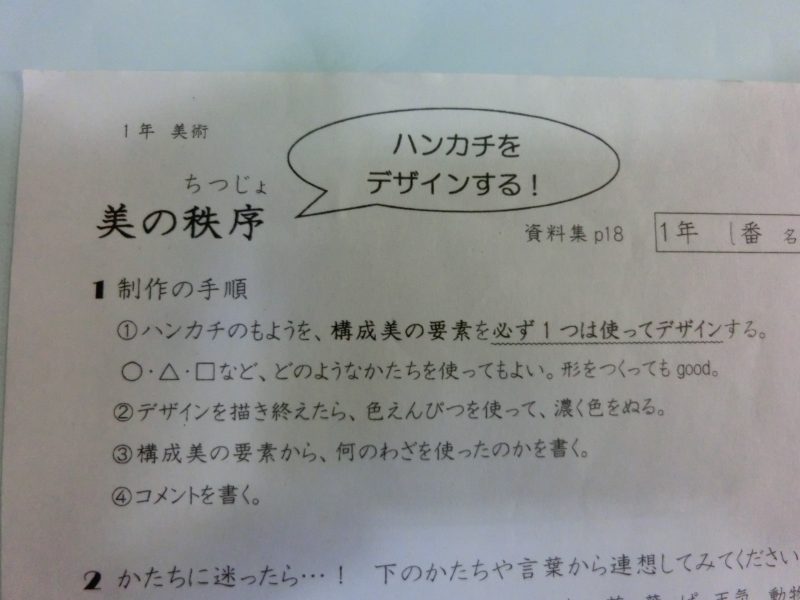 1年 美術
ハンカチを
デザインする！
ちつじょ
美の秩序
資料集 p18
1年 1番 名
1 制作の手順
①ハンカチのもようを、構成美の要素を必ず1つは使ってデザインする。
○・△・□など、どのようなかたちを使ってもよい。形をつくっても good。
②デザインを描き終えたら、色えんぴつを使って、濃く色をぬる。
③構成美の要素から、何のわざを使ったのかを書く。
④コメントを書く。
2 かたちに迷ったら…！ 下のかたちや言葉から連想してみてください
葉っぱ 天気 動物